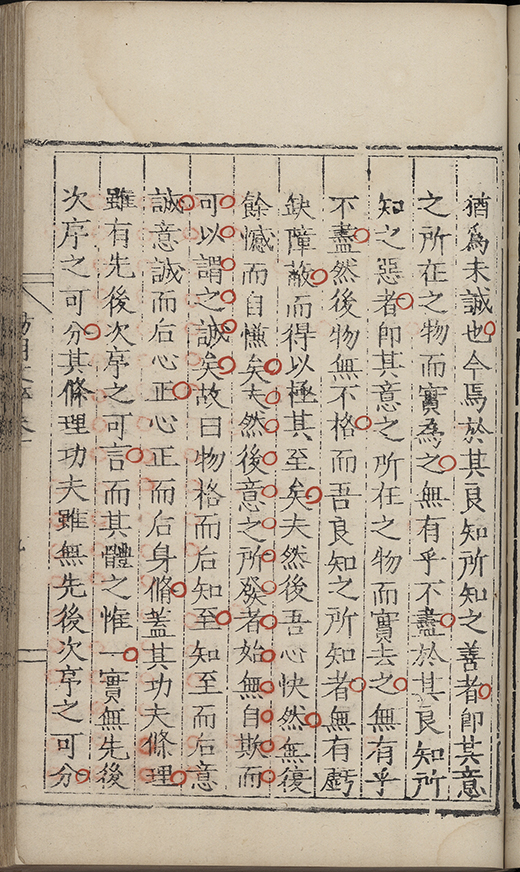 猶為未誠也今焉於其良知所知之善者即其意
之所在之物而實為之無有乎不盡於其良知所
知之惡者即其意之所在之物而實去之無有乎
不盡然後物無不格而吾良知之所知者無有虧
缺障蔽而得以極其至矣夫然後吾心快然無復
餘憾而自慊矣夫然後意之所發者始無自欺而
可以謂之誠矣故曰物格而后知至知至而后意
誠意誠而后心正心正而后身脩蓋其功夫條理
雖有先後次序之可言而其體之惟一實無先後
次序之可分其條理功夫雖無先後次序之可分